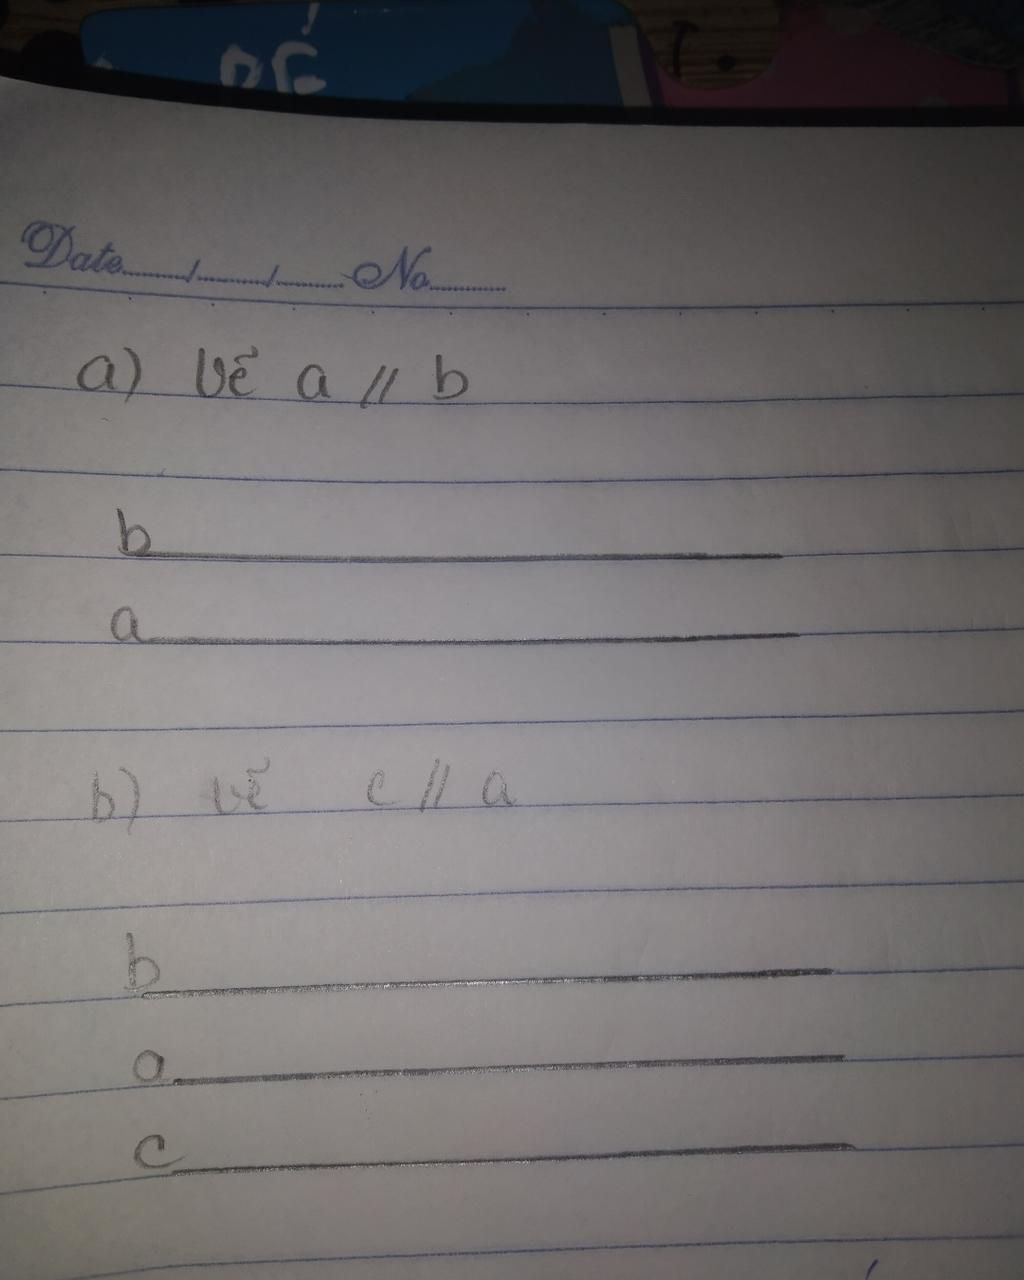 DÉ
Date....../....../...... No.......
a) Vẽ a // b
b
a
b) Vẽ c // a
b
a
c